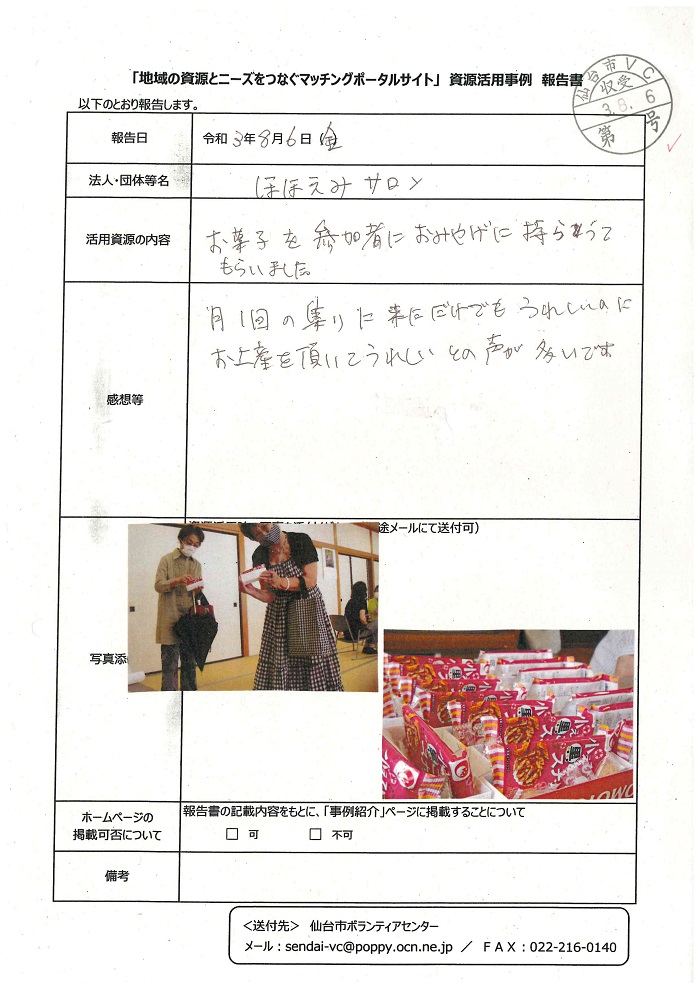 「地域の資源とニーズをつなぐマッチングポータルサイト」 資源活用事例 報告書
仙台市VC
収受
3.8.6
第 号
以下のとおり報告します。
報告日
令和 3年 8月 6日 金
法人・団体等名
ほほえみサロン
活用資源の内容
お菓子を参加者におみやげに持ち帰って
もらいました。
感想等
月1回の集りに来ただけでもうれしいのに
お土産を頂いてうれしいとの声が多いです
途メールにて送付可）
写真添
ホームページの
掲載可否について
報告書の記載内容をもとに、「事例紹介」ページに掲載することについて
□ 可 □ 不可
備考
＜送付先＞ 仙台市ボランティアセンター
メール：sendai-vc@poppy.ocn.ne.jp ／ ＦＡＸ：022-216-0140